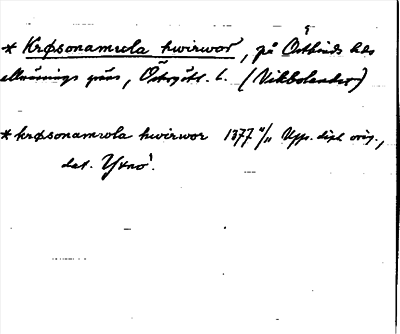 * Krøsonamula hwirwor, på Östkinds hds
allmännings gräns, Östergötl. l. (Vikbolandet)
* krøsonamola hwirwor 1377 4/11 Upps. dipl. orig.,
dat. Yxnö.